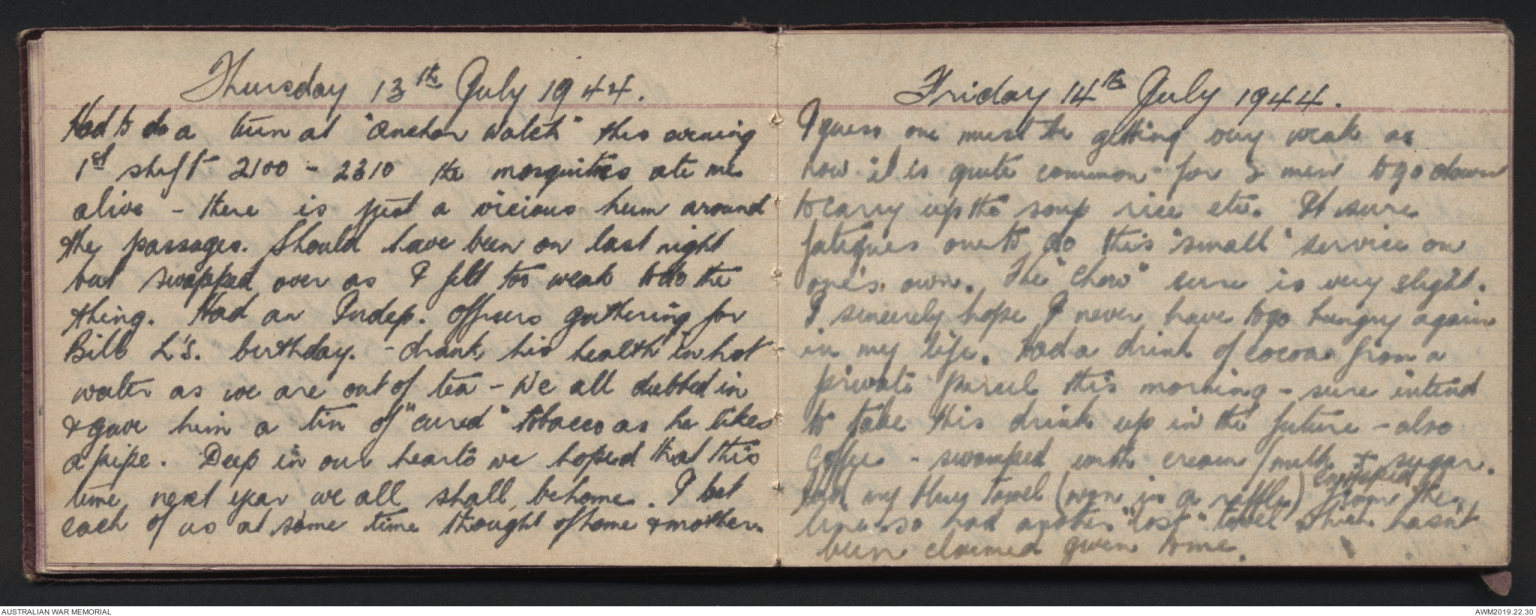 Thursday 13th July 1944.
Had to do a turn at "anchor watch" this evening
1st shift 2100 - 2310 the mosquitoes ate me
alive - there is just a vicious hum around
the passages. Should have been on last night
but swapped over as I felt too weak to do the
thing. Had an Indep. Officers gathering for
Bill L's. birthday. - drank his health in hot
water as we are out of tea - We all dubbed in
& gave him a tin of "cured" tobacco as he likes
a pipe. Deep in our hearts we hoped that this
time next year we all shall be home. I bet
each of us at some time thought of home & mother.
Friday 14th July 1944.
I guess one must be getting very weak as
now it is quite common for 2 men to go down
to carry up the soup rice etc. It sure
fatigues one to do this "small" service on
one's own. The "chow" serve is very slight.
I sincerely hope I never have to go hungry again
in my life. Had a drink of cocoa from a
private parcel this morning - sure intend
to take this drink up in the future - also
coffee - swamped with cream / milk & sugar.
Had my towel (won in a raffle) swiped from the
line so had another "lost" towel which hasn't
been claimed given to me.
AUSTRALIAN WAR MEMORIAL
AWM2019.22.30